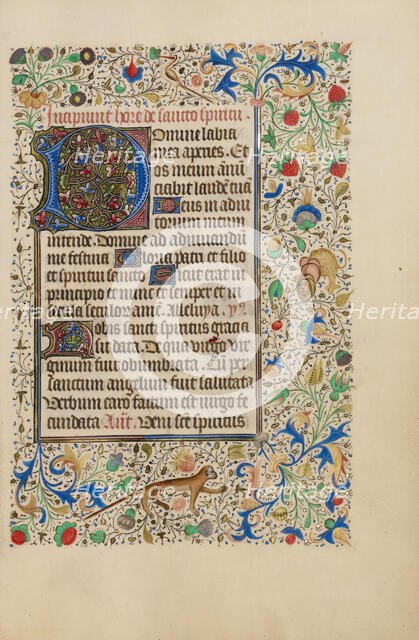 Incipiunt hore de sancto spiritu.
Domine labia
mea aperies. Et
os meum anū
ciabit laudē tuā
Deus in adiu
torium meum
intende. Domine ad adiuuandū
me festina Gloria patri et filio
et spiritui sancto Sicut erat in
principio et nunc et semper et in
secula seculorū amē. Alleluya. ym̄.
Nobis sancti spiritus gracia
sit data. De qua virgo vir
ginum fuit obumbrata. Cū per
sanctum angelum fuit salutata
Verbum caro factum est virgo fe
cundata Ant. Veni sce spiritus
Heritage
Heritage
Heritage
Heritage
Heritage
Heritage